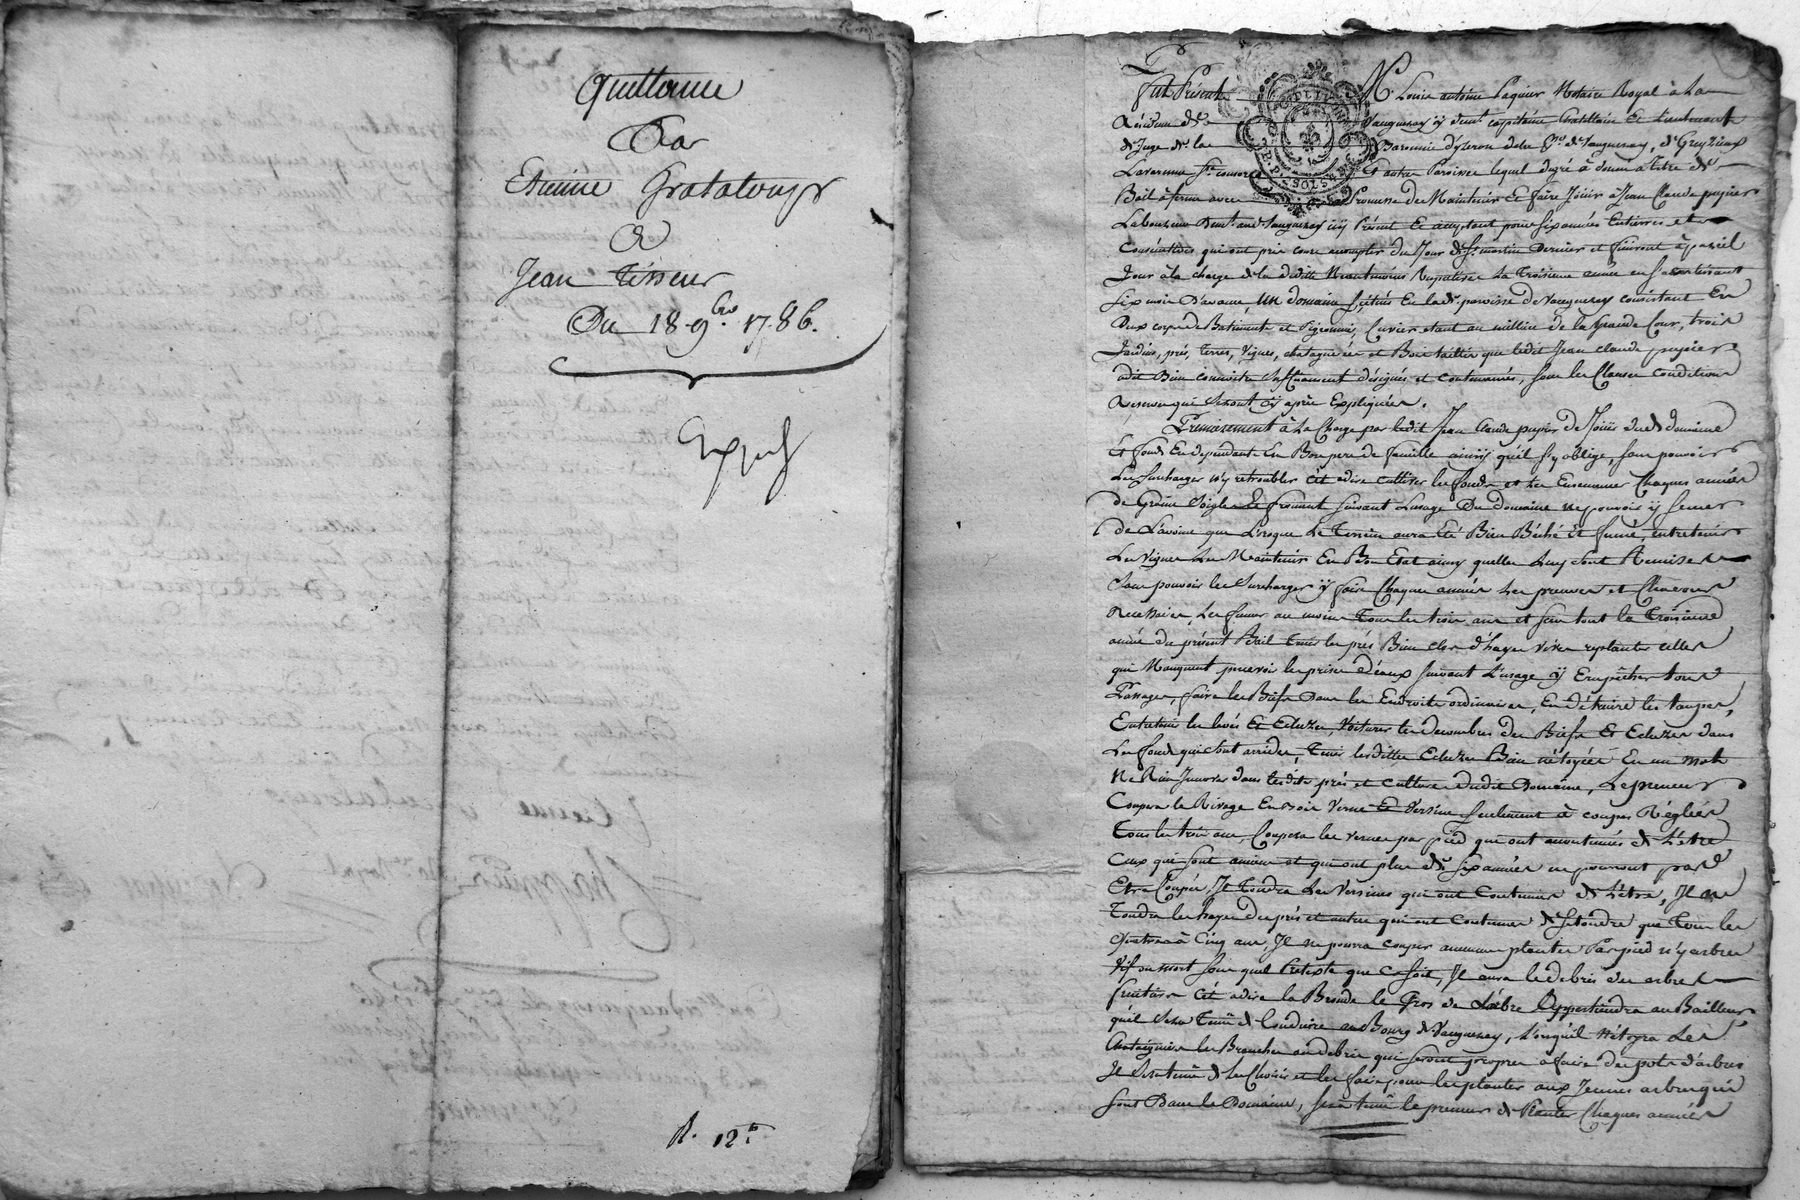 Quittance
Par
Etienne Grataloup
A
Jean Tisseur
Du 18 9bre 1786.
Expedié
R. 12s
Fut Présent Mr Louis antoine Paquer Notaire Royal à la
Résidence de Vaugneray y demt capitaine Chatellain Et Lieutenant
de Juge de la Baronnie d'yzeron de Vaugneray, de Greyzieux
Lavarenne Ste consorce Et autre Paroisses lequel degré à donné a Titre de
Bail à ferme avec Promesse de Maintenir Et faire Jouir à Jean Claude pupier
Laboureur Demt aud Vaugneray icy Présent Et acceptant pour six années Entieres et
Consécutives qui ont pris cours acompter du Jour de St martin Dernier et finiront à pareil
Jour à la charge de la deditte Neantmoins Respective La Troisieme année en S'avertissant
six mois D'avance un domaine scitué En lade paroisse de Vaugneray consistant En
Deux corps de Batiments et Pigeonnier, Cuvier etant au millieu de la grande Cour, trois
Jardins, prés, Terres, Vignes, chataigneraie et Bois taillis que ledit Jean claude pupier
a dit Bien connoitre suffisament désignés et contenances, sous les Clauses conditions
Reserves qui seront cy après Expliquées.
Premierement à la Charge par ledit Jean Claude pupier de Jouir dud domaine
Et fonds En dependants En Bon pere de famille ainsy qu'il s'y oblige, sans pouvoir
Les surcharger n'y retroubler c'èt adire cultiver les fonds et les Ensemencer Chaques années
de Graine Soigle Et froment suivant L'usage Du domaine ne pouvoir y semer
de L'avoine que Lorsque Le Terrein aura Eté Bien Béché Et fumé, entretenir
Les Vignes Les Maintenir En Bon Etat ainsy quelles Luy sont Remises
Sans pouvoir les Surcharger y faire Chaques années Les preuves et Chavons
Necessaires, Les fumer au moins Tous les trois ans et sur tout la Troisieme
année du présent Bail Tenir les prés Bien clos d'hayes vives replanter celles
qui Manquent prendre les prises d'éaux suivant L'usage y Empêcher tous
Passages, faire les Biefs Dans les Endroits ordinaires, En détruire les taupes,
Entretenir les levés Et Ecluzes, Voiturer les decombres des Biefs Et Ecluzes dans
Les fonds qui sont arrides, Tenir lesdittes Ecluzes Bien nétoyées En un mot
Ne Rien Innover dans lesdits prés et culture dudit Domaine, Le preneur
Coupera le Rivage En bois Verne Et Versine seulement à coupes Réglées
Tous les trois ans, Coupera les vernes par pied qui ont accoutumés de L'étre
Ceux qui sont anciens et qui ont plus de six années ne pourront pas
Etre Coupés, Il Tondra Les Versines qui ont Coutume de L'étre, Il ne
Tondra les hayes des prés et autres qui ont Coutumes de se tondre que Tous les
Quatre à Cinq ans, Il ne pourra couper aucunes plantes Par pied n'y arbres
Vif ou mort sous quel Prétexte que Ce soit, Il aura le debris des arbres
fruitiers C'èt adire la Brande le Gros de L'arbre Appartiendra au Bailleur
qu'il sera Tenû de Conduire au Bourg de Vaugneray, Lorsquil Nétoyra Les
Chataigniers les Branches ou debris qui seront propres à faire des pots d'arbres
Il sera tenu de les Choisir et les faire pour les planter aux Jeunes arbres qui
sont Dans le Domaine, sera tenû le preneur de Planter Chaques années